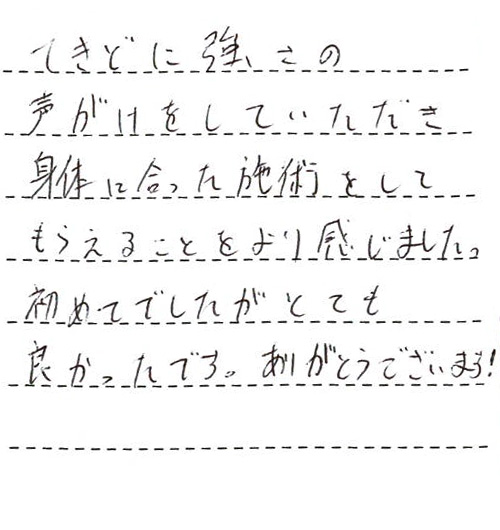 てきどに強さの
声がけをしていただき
身体に合った施術をして
もらえることをより感じました。
初めてでしたがとても
良かったです。ありがとうございます!